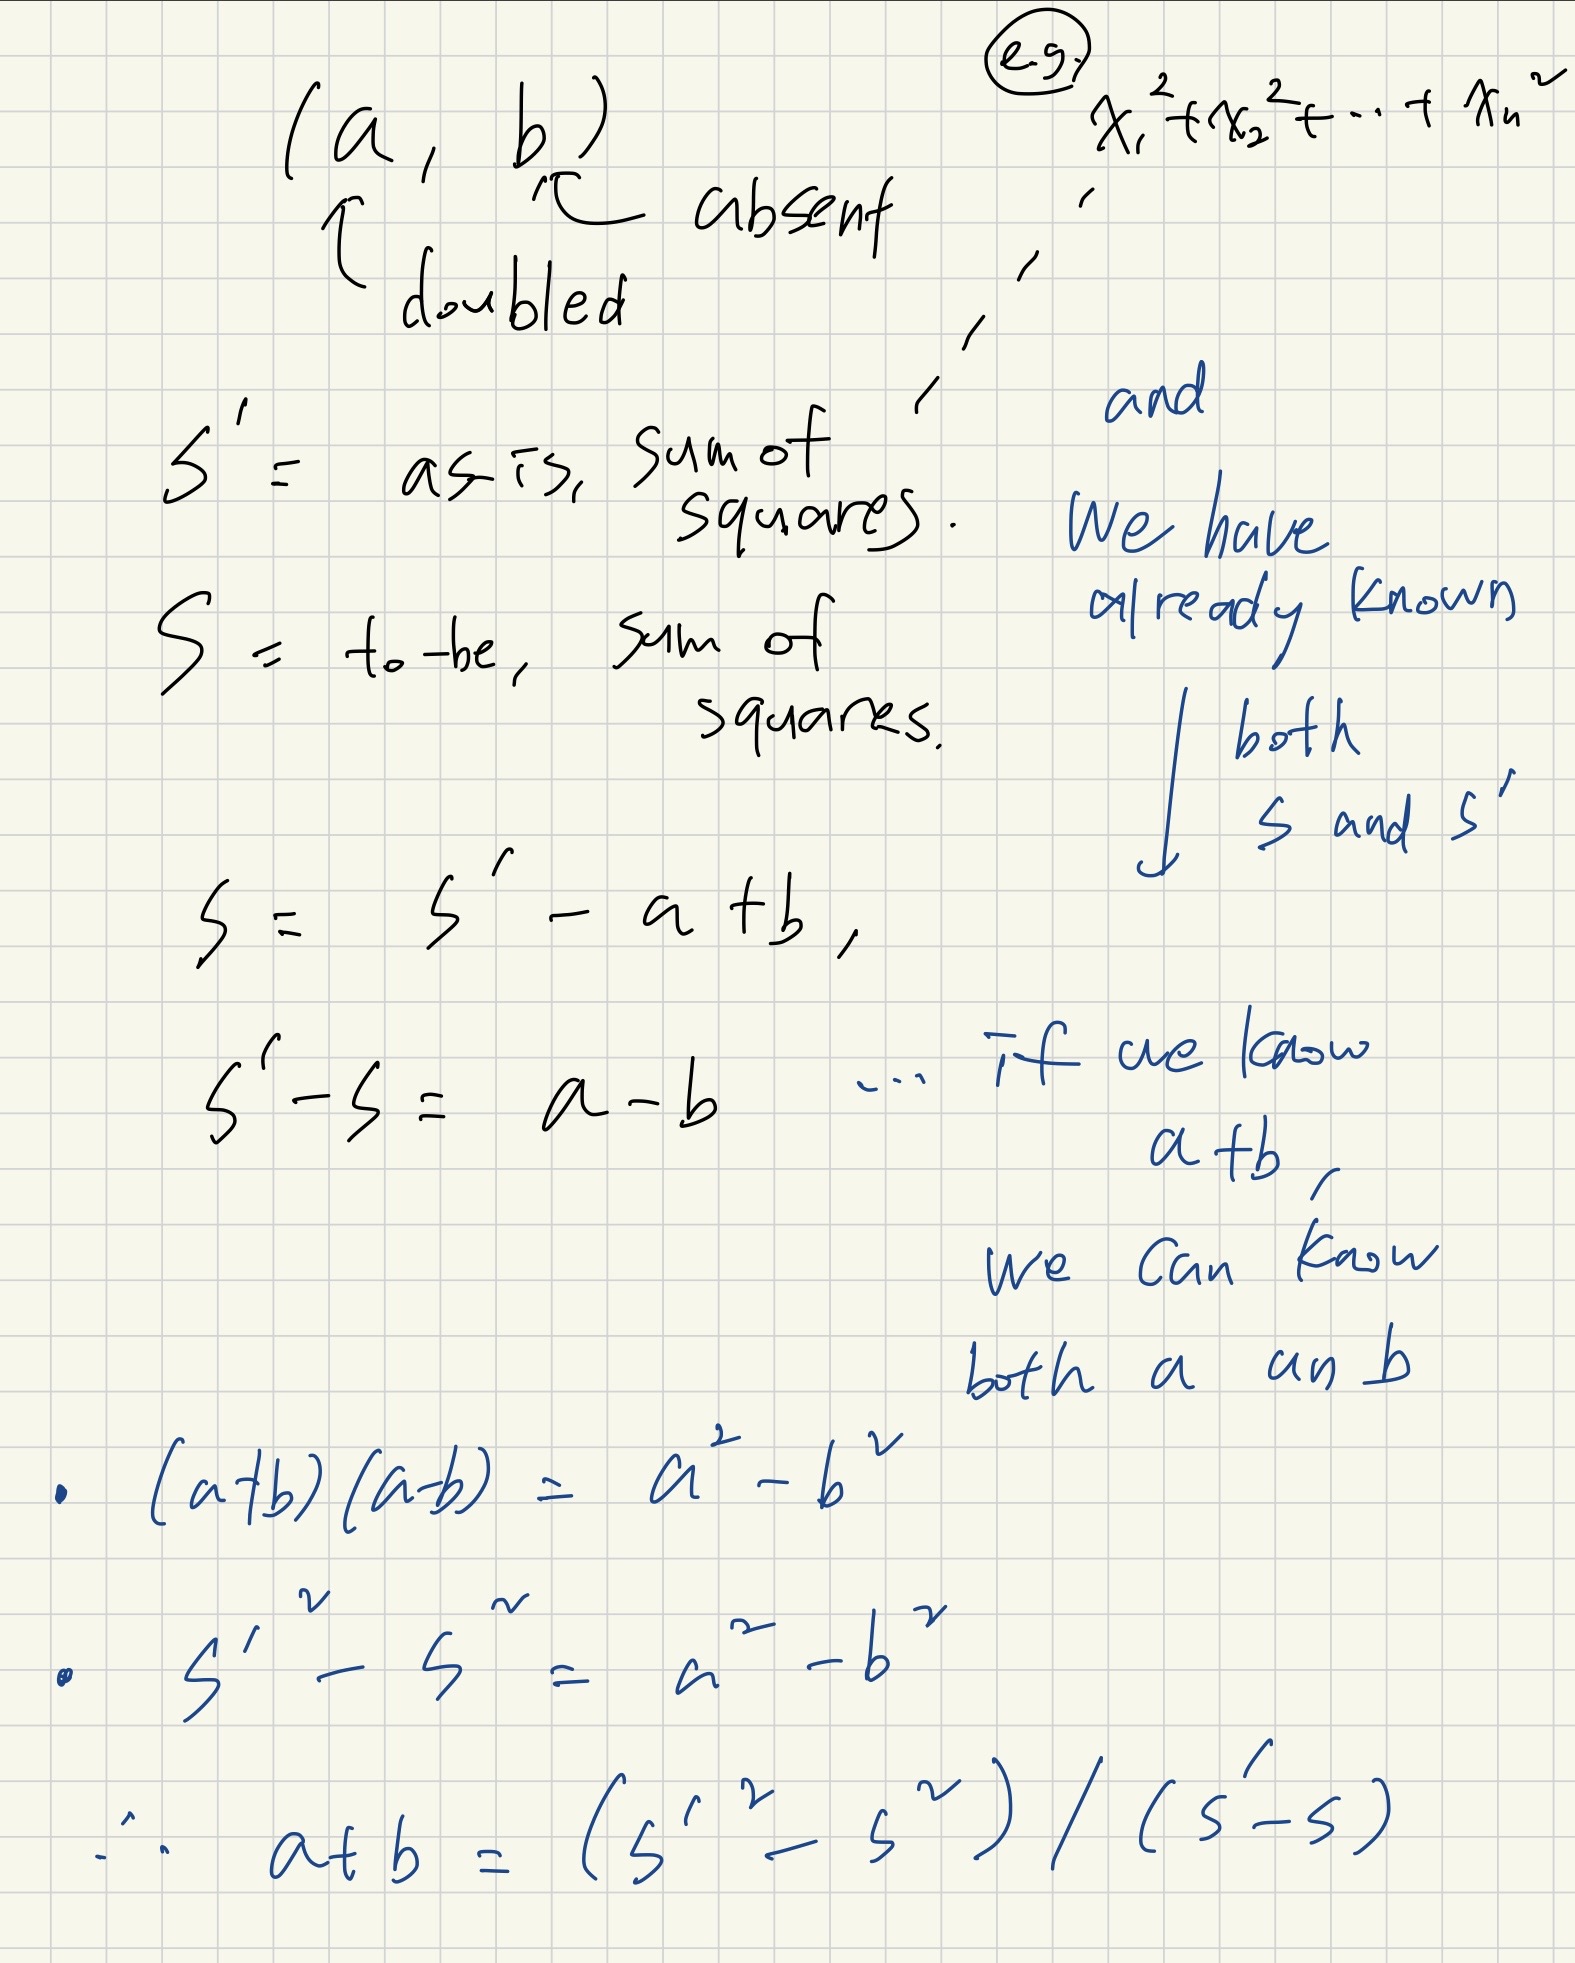 e.g.
x₁² + x₂² + ... + xₙ²
(a, b)
absent
doubled
S' = as-is, sum of
squares.
S = to-be, sum of
squares.
and
we have
already known
both
S and S'
S = S' - a + b,
S' - S = a - b
... if we know
a + b,
we can know
both a an b
• (a+b)(a-b) = a² - b²
• S'² - S² = a² - b²
∴ a+b = (S'² - S²) / (S' - S)